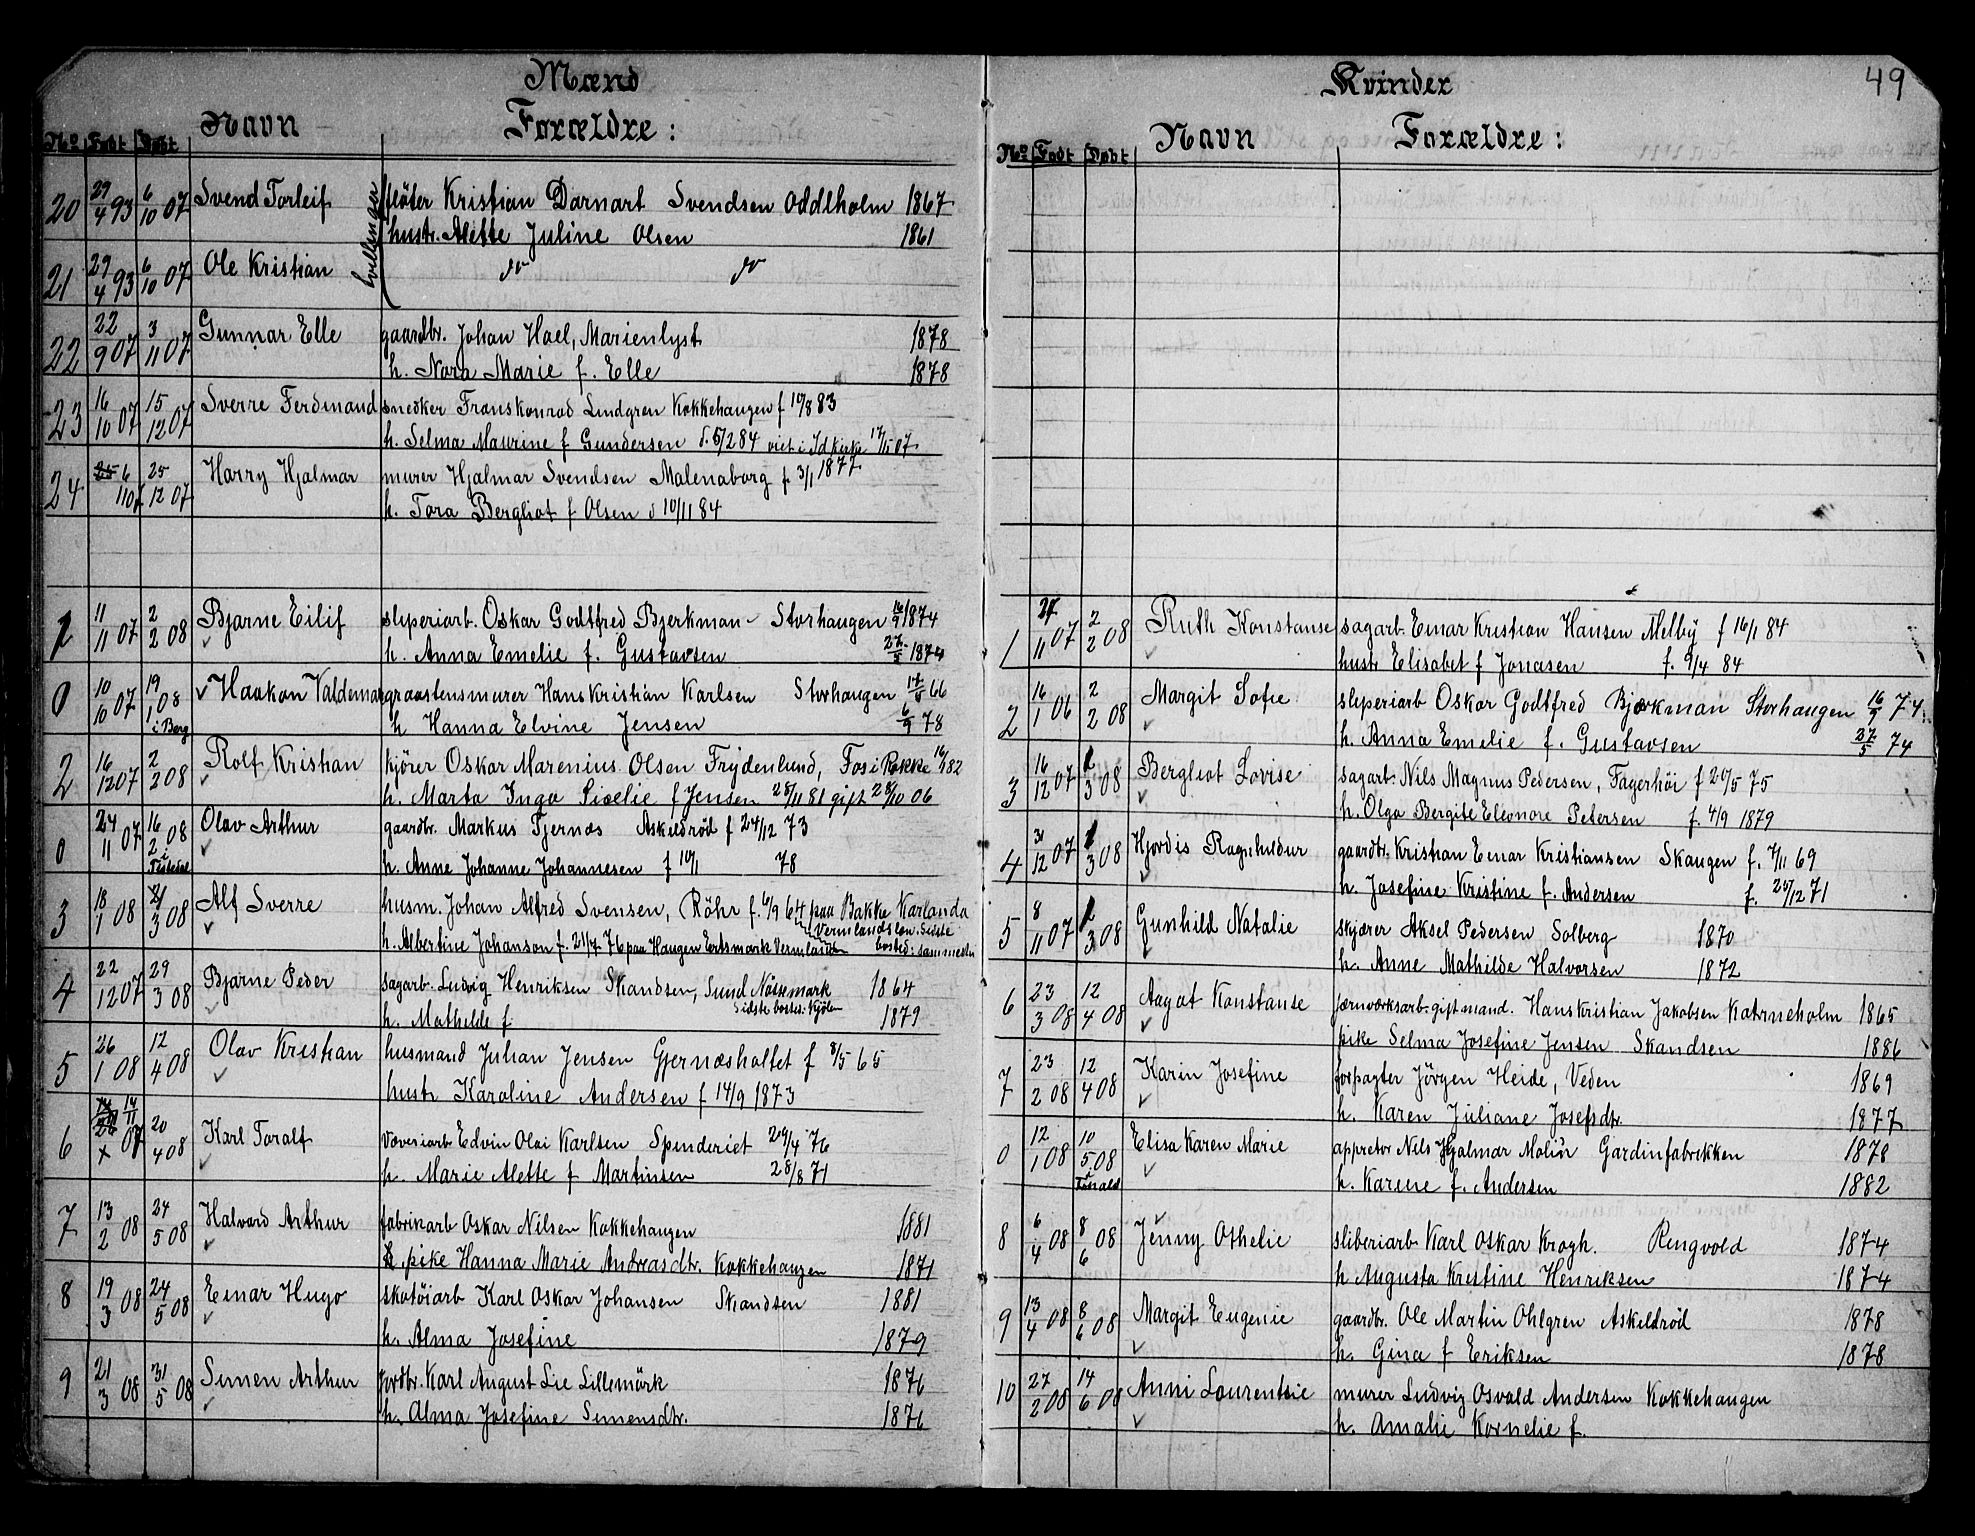 Mænd
Navn Forældre:
No Født Døbt
20 29/4 93 6/10 07 Svend Torleif fløter Kristian Darnart Svendsen Oddlholm 1867
tvillinger
hustr. Alette Juline Olsen 1861
21 29/4 93 6/10 07 Ole Kristian do do
22 22/9 07 3/11 07 Gunnar Elle gaardbr. Johan Hoel, Marienlyst 1878
h. Nora Marie f. Elle 1878
23 16/10 07 15/12 07 Sverre Ferdinand snedker Franskonrad Lindgren Kokkehaugen f 19/8 83
h. Selma Maurine f Gundersen d. 5/2 84 viet i Id kirke 17/11 07
24 6/11 07 25/12 07 Harry Hjalmar murer Hjalmar Svendsen Malenaborg f 3/1 1877
h. Tora Bergliot f Olsen d 10/11 84
1 11/11 07 2/2 08 Bjarne Eilif sliperiarb. Oskar Godtfred Bjerkman - Storhaugen 16/9 1874
h. Anna Emelie f. Gustavsen 27/5 1874
0 10/10 07 19/1 08 i Berg Haakon Valdemar graastensmurer Hans Kristian Karlsen Storhaugen 17/5 66
h Hanna Elvine Jensen 6/9 78
2 16/12 07 2/2 08 Rolf Kristian kjörer Oskar Marenius Olsen Frydenlund, Fos i Rakke 16/7 82
h. Marta Inga Sicelie f Jensen 28/11 81 gift 28/10 06
0 24/11 07 16/2 08 i Tistedal Olav Arthur gaardbr. Markus Tjernæs Askelrød f 24/12 73
h. Anne Johanne Johannesen f 10/11 78
3 18/1 08 21/3 08 Alf Sverre husm. Johan Alfred Svensen, Röhr f. 6/9 64 paa Bakke Karlanda
Vermlandslen. Sidste
h. Albertine Johanson f. 21/7 76 paa Haugen Ertsmark Vermlandslen bosted: sammesteds
4 22/12 07 29/3 08 Bjarne Peder sagarb. Ludvig Henriksen Skandsen, Sund Nössemark 1864
Sidste bosted: Kjölen
h. Mathilde f 1879
5 26/1 08 12/4 08 Olav Kristian husmand Julian Jensen Gjernæsholtet f 8/5 65
hustr Karoline Andersen f 14/9 1873
6 14/11 07 20/4 08 Karl Toralf væveriarb Edvin Olai Karlsen Spinderiet 29/4 76
h. Marie Alette f Martinsen 28/8 71
7 13/2 08 24/5 08 Halvard Arthur fabrikarb Oskar Nilsen Kokkehaugen 1881
pike Hanna Marie Andreasdtr. Kokkehaugen 1871
8 19/3 08 24/5 08 Einar Hugo skotöiarb Karl Oskar Johansen Skandsen 1881
h. Alma Josefine 1879
9 21/3 08 31/5 08 Simen Arthur jordbr. Karl August Lie Lillemörk 1876
h. Alma Josefine Simensdtr. 1876
Kvinder 49
Navn Forældre:
No Født Døbt
1 27/11 07 2/2 08 Ruth Konstanse sagarb. Einar Kristian Hansen Melby f 16/1 84
hustr Elisabet f Jonasen f. 9/4 84
2 16/1 06 2/2 08 Margit Sofie sliperiarb Oskar Godtfred Bjerkman Storhaugen 16/9 74
h. Anna Emelie f. Gustavsen 27/5 74
3 16/12 07 1/3 08 Bergliot Lovise sagarb. Nils Magnus Pedersen, Fagerhöi f 20/5 75
h. Olga Bergite Eleonore Petersen f. 4/9 1879
4 31/12 07 1/3 08 Hjordis Ragnhildur gaardbr. Kristian Einar Kristiansen Skaugen f. 7/11 69
h. Josefine Kristine f. Andersen f. 20/12 71
5 8/11 07 1/3 08 Gunhild Natalie skjærer Aksel Pedersen Solberg 1870
h. Anne Mathilde Halvorsen 1872
6 23/3 08 12/4 08 Aagot Konstanse jernværksarb. gift mand. Hans Kristian Jakobsen Katrineholm 1865
pike Selma Josefine Jensen Skandsen 1886
7 23/2 08 12/4 08 Karin Josefine forpagter Jörgen Heide, Veden 1869
h. Karen Juliane Josefsdtr. 1877
0 12/1 08 10/5 08 Elisa Karen Marie appretør Nils Hjalmar Molin Gardinfabrikken 1878
h. Karine f. Andersen 1882
8 6/4 08 8/6 08 Jenny Othelie sliberiarb Karl Oskar Krogh. Ringvold 1874
h Augusta Kristine Henriksen 1874
9 13/4 08 8/6 08 Margit Eugenie gaardbr. Ole Martin Ohlgren Askelrød 1878
h. Gina f Eriksen 1878
10 27/2 08 14/6 08 Anni Laurentie murer Ludvig Osvald Andersen Kokkehaugen
h. Amalie Kornelie f.